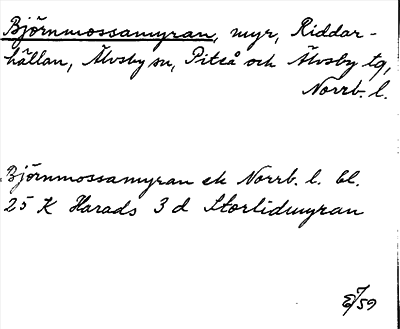 Björnmossamyran, myr, Riddar-
hällan, Älvsby sn, Piteå och Älvsby tg,
Norrb. l.
Björnmossamyran ek Norrb. l. bl.
25 K Harads 3 d Storlidmyran
E7/59